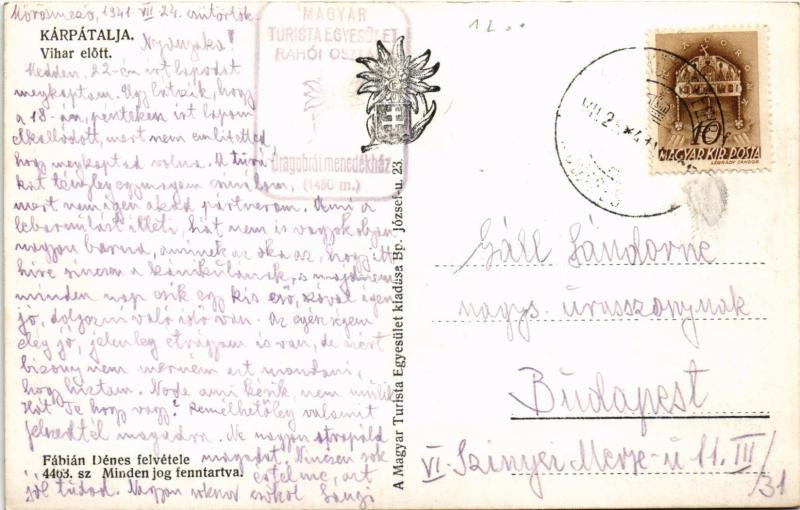 Kőrösmező, 1941. VII. 24. csütörtök.
KÁRPÁTALJA.
Vihar előtt.
Nyanyuka!
Kedden, 22-én írt lapodat
megkaptam. Úgy látszik, hogy
a 18-án, pénteken írt lapom
elkallódott, mert nem említetted
hogy megkaptad volna. A túrá
kat tényleg egymagam csinálom,
mert nem igen akad partnerem. Ami a
lebarnulást illeti, hát nem is vagyok olyan
nagyon barna, aminek az oka az, hogy itt
híre sincsen a kánikulának, s majdnem
minden nap esik egy kis eső, szóval igen
jó, dolgozni való idő van. Az egészségem
elég jó, jelenleg étvágyam is van, de azért
bizony nem merném azt mondani,
hogy híztam. No de ami késik, nem múlik.
Hát Te hogy vagy? Remélhetőleg valamit
felszedtél magadra. Ne nagyon strapáld
magadat. Nincsen sok
értelme, azt
jól tudod. Nagyon sokszor csókol
Fábián Dénes felvétele
4463. sz Minden jog fenntartva.
MAGYAR
TURISTA EGYESÜLET
RAHÓI OSZT
Dragobrái menedékház
(1450 m.)
A Magyar Turista Egyesület kiadása Bp. József-u. 23.
10 f
MAGYAR KIR. POSTA
LÉGRÁDY SÁNDOR
Gáll Sándorné
nagys. úrasszonynak
Budapest
VI. Szinyei Merse-u 11. III/31